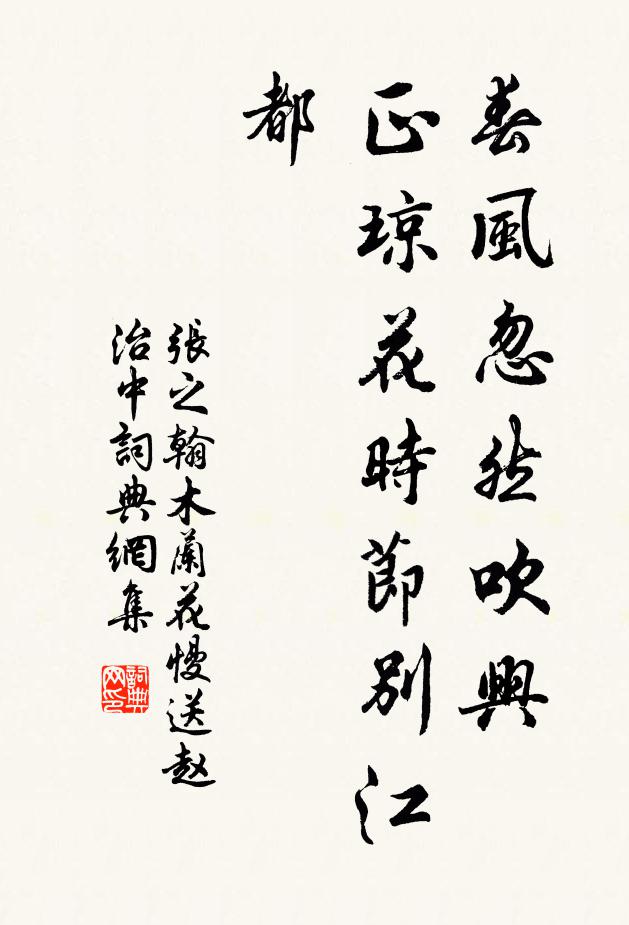 春風忽然吹興
正琼花時節別江
都
張之翰木蘭花慢送赵
治中詞典網集
詞典网印